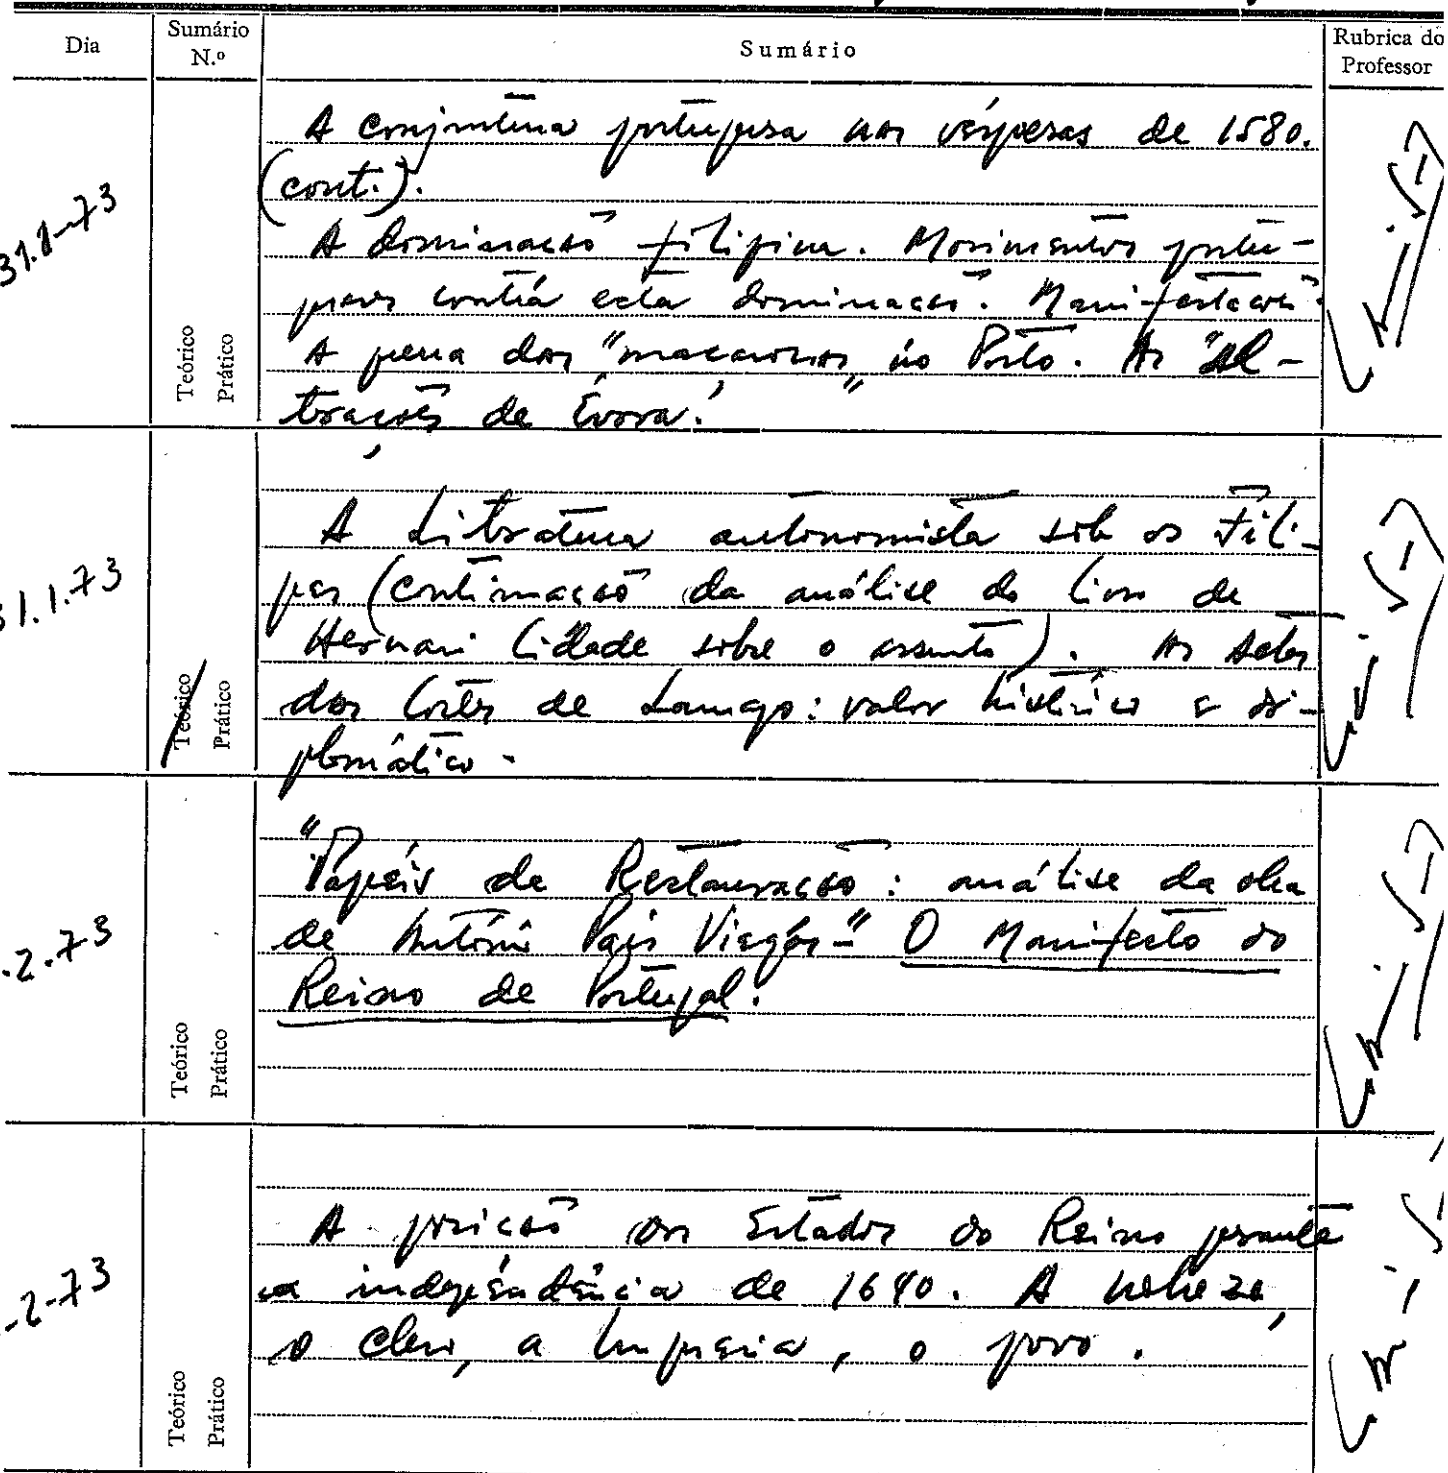 Dia
Sumário
N.º
Sumário
Rubrica do
Professor
31.1-73
Teórico
Prático
A conjuntura portuguesa nas vésperas de 1580.
(cont.).
A dominação filipina. Movimentos portu-
gueses contra esta dominação. Manifestações.
A dos "maçarocas" no Porto. As "Al-
terações de Évora".
31.1.73
Teórico
Prático
A Literatura autonomista sob os Fili-
pes (continuação da análise do livro de
Hernani Cidade sobre o assunto). As Actas
das Cortes de Lamego: valor histórico e di-
plomático.
.2.73
Teórico
Prático
"Papéis de Restauração: análise da obra
de António Pais Viegas-" O Manifesto do
Reino de Portugal.
-2-73
Teórico
Prático
A posição dos Estados do Reino perante
a independência de 1640. A nobreza,
o clero, a burguesia, o povo.